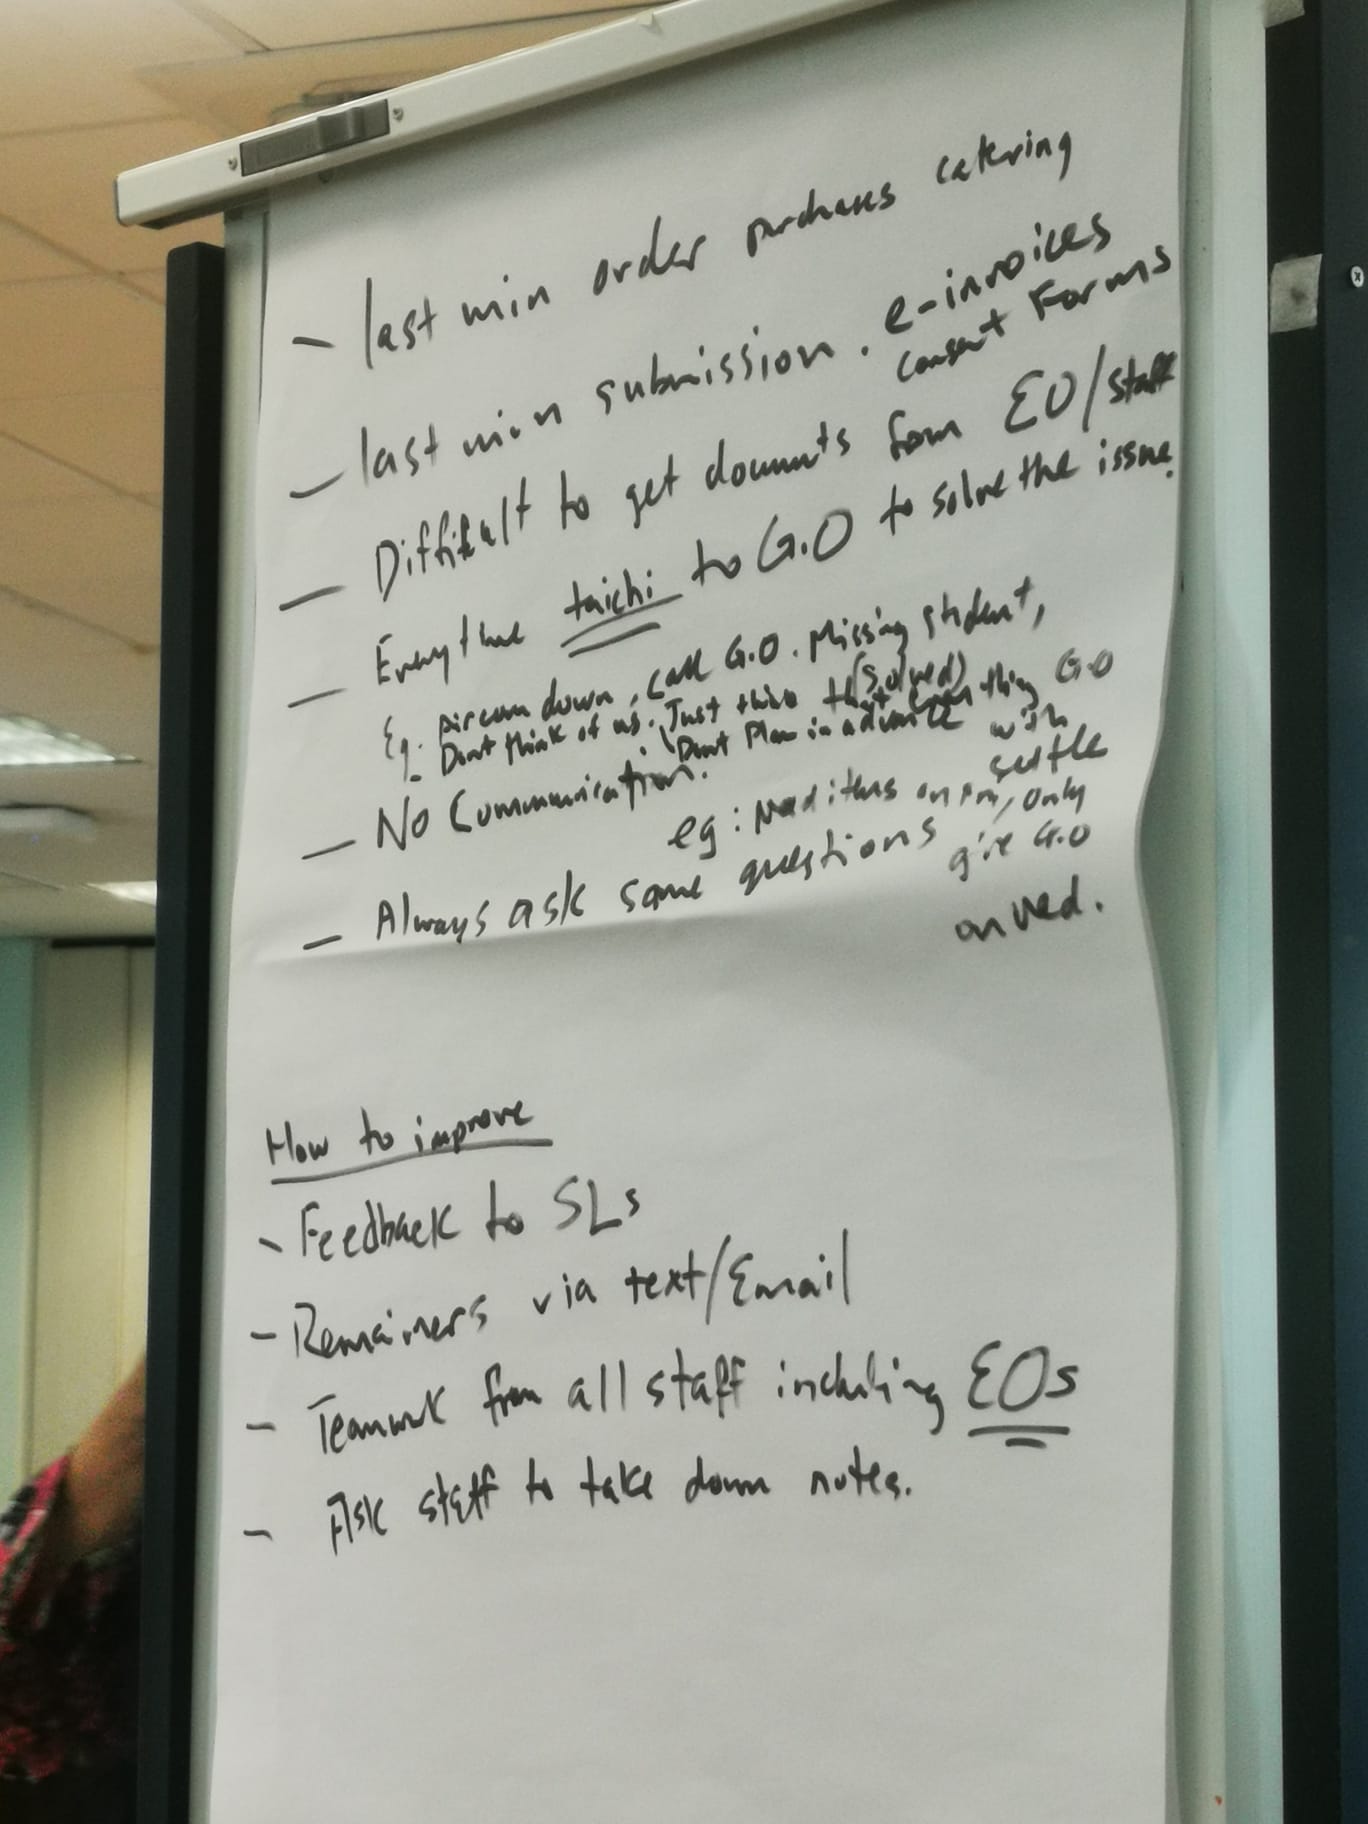 - last min order purchases catering
- last min submission. e-invoices
consent Forms
- Difficult to get documents from EO/staff
- Everytime taichi to G.O to solve the issue.
Eg. Aircon down, call G.O. Missing student,
(solved)
- Dont think of us. Just think that everything G.O
settle
- No Communication. \ Dont Plan in advance with
eg: Need items on Fri, only
give G.O
on Wed.
- Always ask same questions
How to improve
- Feedback to SLs
- Remainers via text/Email
- Teamwork from all staff including EOs
- Ask staff to take down notes.